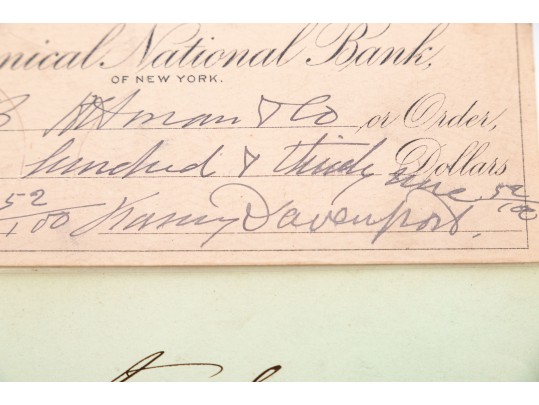 nical National Bank,
OF NEW YORK.
B Altman & Co or Order,
hundred & thirty one 52/100 Dollars
52/100 Fanny Davenport.